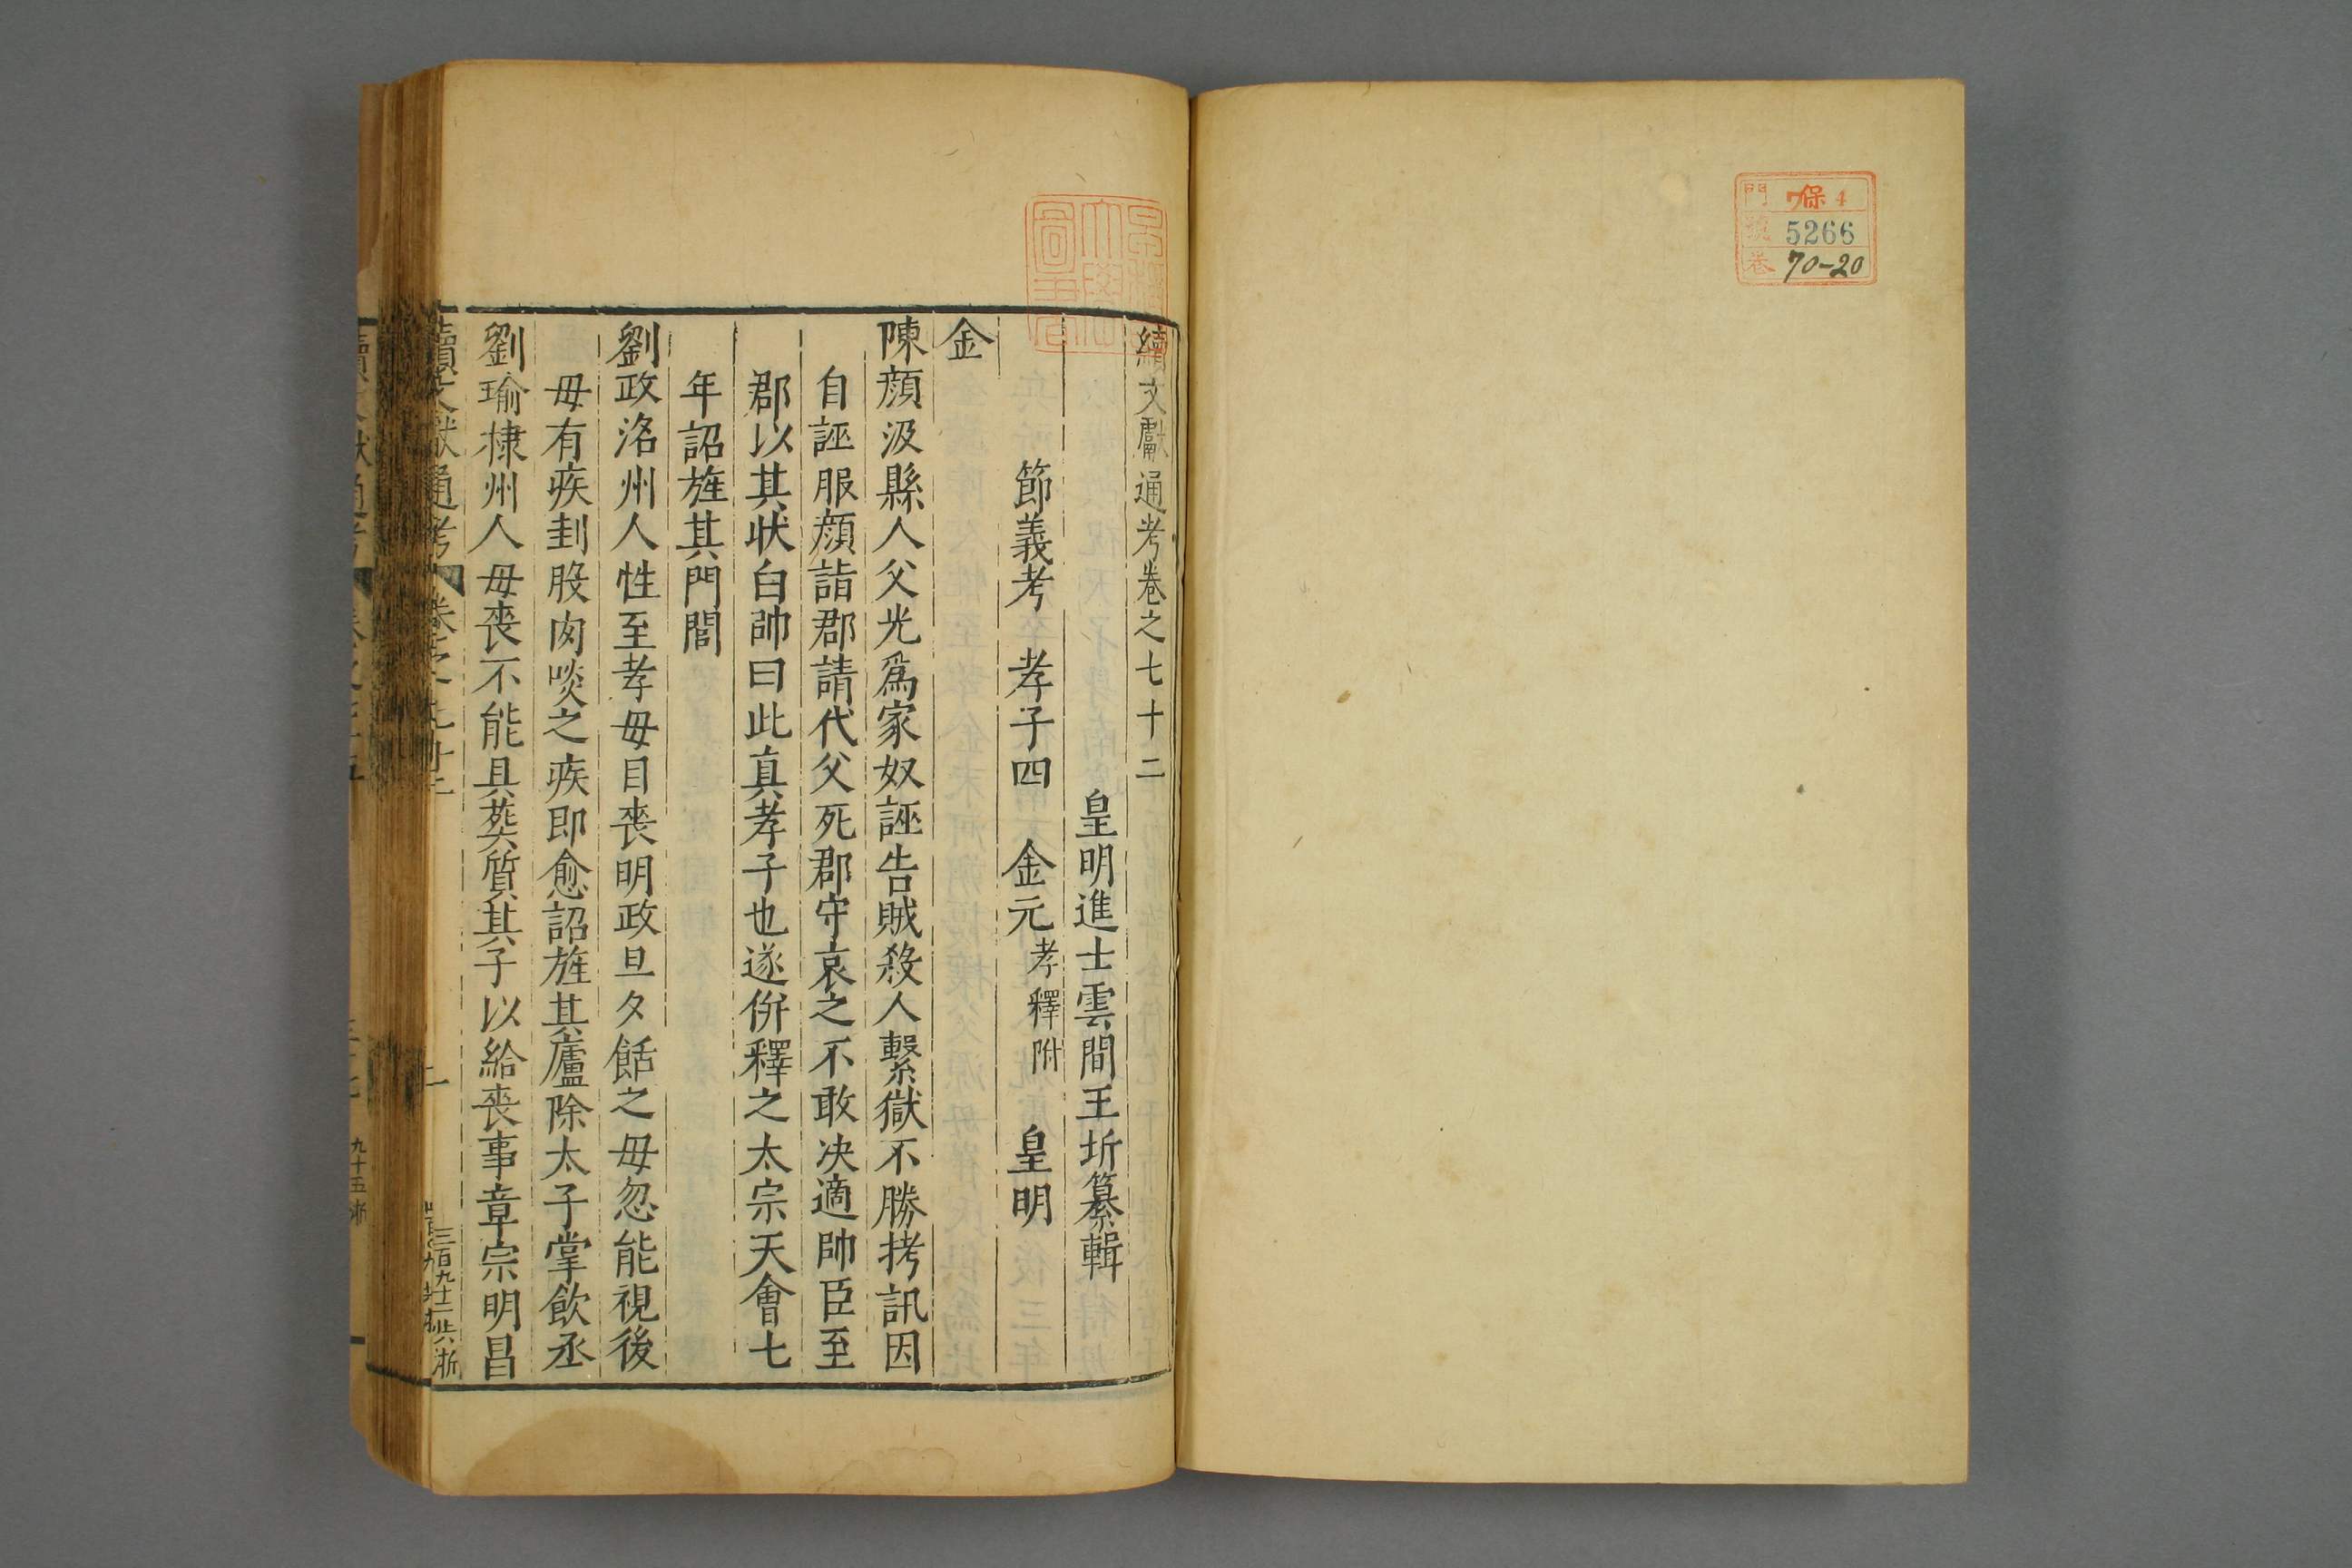 門 保 4
號 5266
巻 70-20
續文獻通考卷之七十二
皇明進士雲間王圻纂輯
節義考 孝子四 金元孝釋附 皇明
金
陳顔汲縣人父光爲家奴誣告賊殺人繫獄不勝拷訊因
自誣服顔詣郡請代父死郡守哀之不敢决適帥臣至
郡以其狀白帥曰此真孝子也遂併釋之太宗天會七
年詔旌其門閭
劉政洺州人性至孝母目喪明政旦夕餂之母忽能視後
母有疾刲股肉啖之疾即愈詔旌其廬除太子掌飲丞
劉瑜棣州人母喪不能具葬質其子以給喪事章宗明昌
續文獻通考 卷之七十二
一